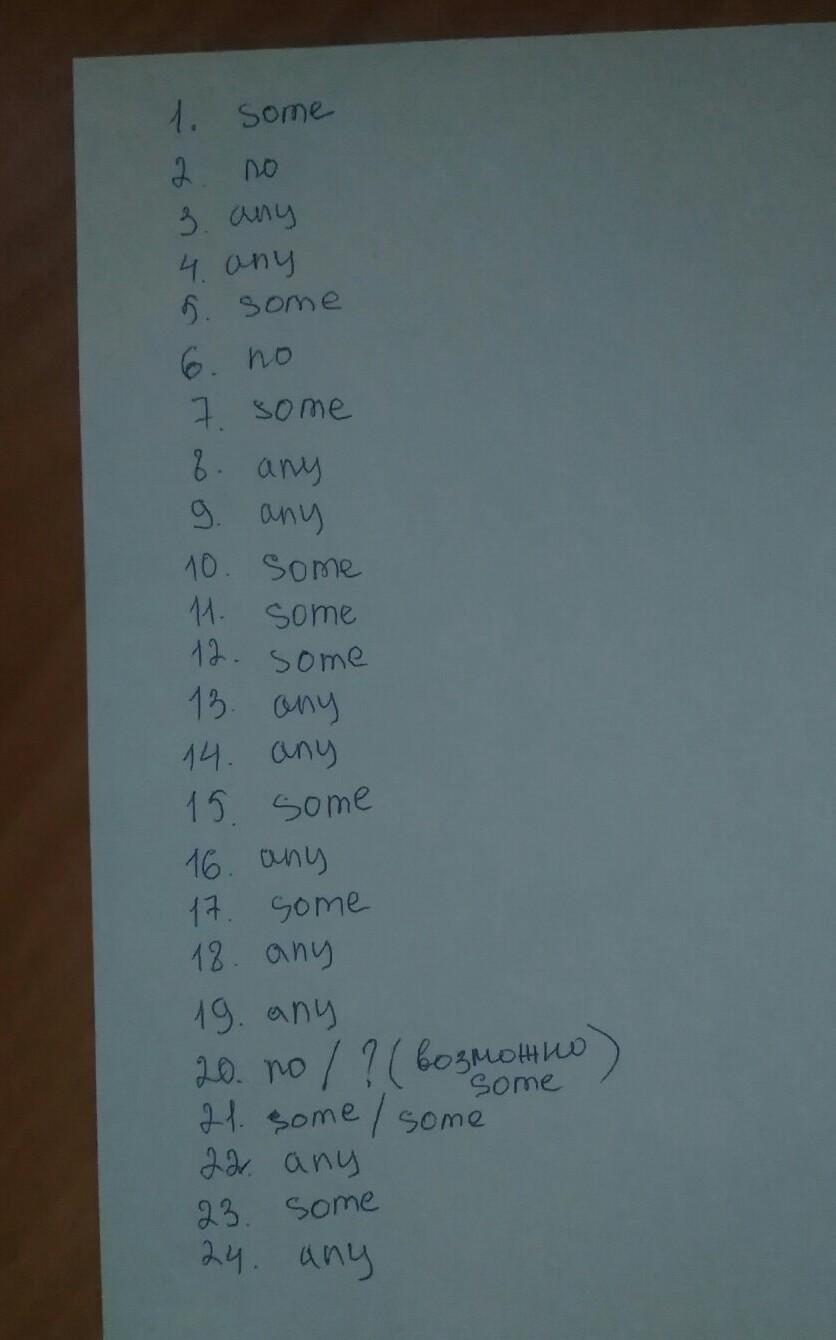 1. some
2. no
3. any
4. any
5. some
6. no
7. some
8. any
9. any
10. some
11. some
12. some
13. any
14. any
15. some
16. any
17. some
18. any
19. any
20. no / ? (возможно)
some
21. some / some
22. any
23. some
24. any